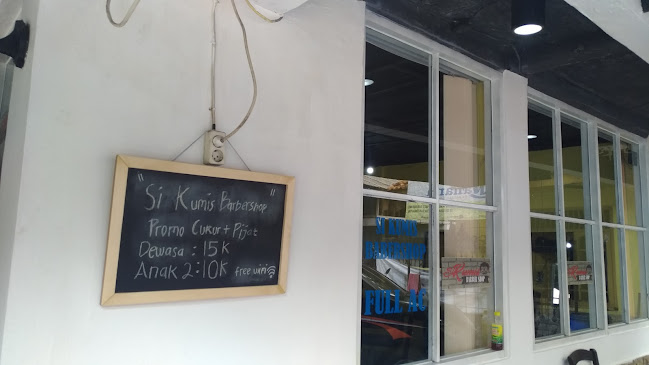 " Si Kumis Barbershop "
Promo Cukur + Pijat
Dewasa : 15K
Anak 2 : 10K free wifi
SI KUMIS
BARBERSHOP
FULL AC
BARBER SHOP